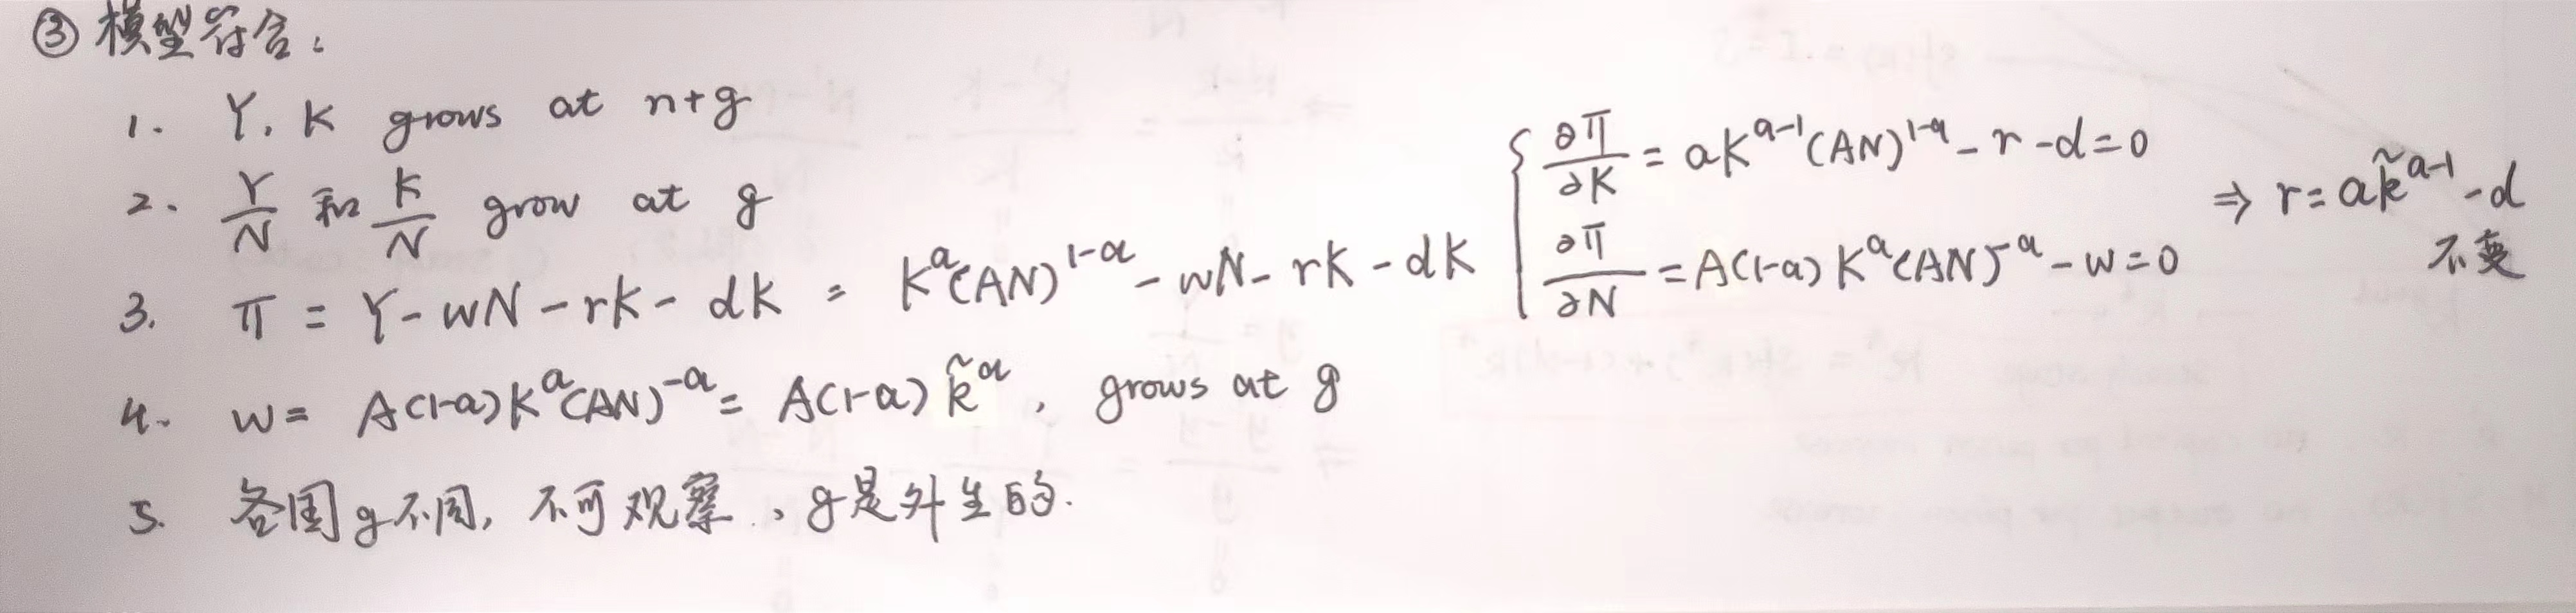 ③ 模型符合：
1. Y, K grows at n+g
2. Y/N 和 K/N grow at g
3. π = Y - wN - rK - dK = K^a(AN)^{1-a} - wN - rK - dK { ∂π/∂K = aK^{a-1}(AN)^{1-a} - r - d = 0
∂π/∂N = A(1-a)K^a(AN)^{-a} - w = 0
⇒ r = ak̃^{a-1} - d
不变
4. w = A(1-a)K^a(AN)^{-a} = A(1-a)k̃^a, grows at g
5. 各国g不同, 不可观察, g是外生的.